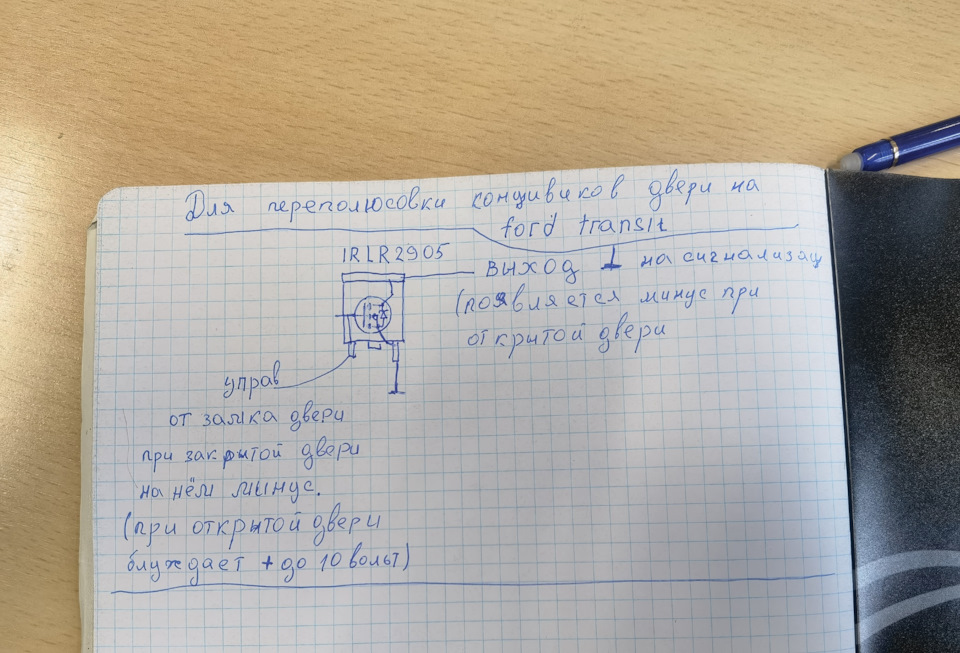 Для переполюсовки концивиков двери на
ford transit
IRLR2905
выход ⊥ на сигнализац
(появляется минус при
открытой двери
управ
от замка двери
при закрытой двери
на нём минус.
(при открытой двери
блуждает + до 10 вольт)